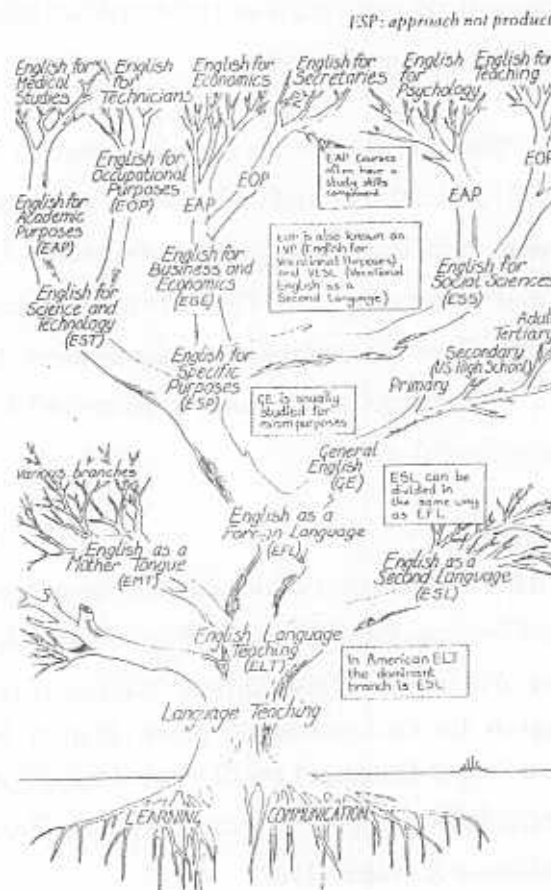 ESP: approach not product
English for
Medical
Studies
English
for
Technicians
English for
Economics
English for
Secretaries
English
for
Psychology
English for
Teaching
English for
Occupational
Purposes
(EOP)
EAP
EOP
EAP courses
often have a
study skills
component
EAP
EOP
English for
Academic
Purposes
(EAP)
English for
Business and
Economics
(EBE)
EOP is also known as
EVP (English for
Vocational Purposes)
and VESL (Vocational
English as a
Second Language)
English for
Social Sciences
(ESS)
English for
Science and
Technology
(EST)
English for
Specific
Purposes
(ESP)
Adult
Tertiary
Secondary
(US High School)
Primary
GE is usually
studied for
exam purposes
General
English
(GE)
various branches
ESL can be
divided in
the same way
as EFL
English as a
Foreign Language
(EFL)
English as a
Mother Tongue
(EMT)
English as a
Second Language
(ESL)
English Language
Teaching
(ELT)
In American ELT
the dominant
branch is ESL
Language Teaching
LEARNING
COMMUNICATION